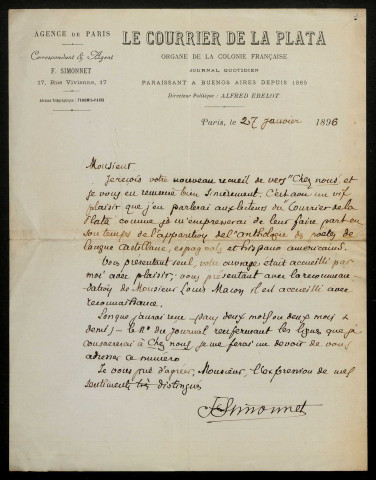 AGENCE DE PARIS
Correspondant & Agent
F. SIMONNET
17, Rue Vivienne, 17
LE COURRIER DE LA PLATA
ORGANE DE LA COLONIE FRANÇAISE
JOURNAL QUOTIDIEN
PARAISSANT A BUENOS AIRES DEPUIS 1865
Directeur Politique : ALFRED EBELOT
Paris, le 27 janvier 1896
Monsieur
Je reçois votre nouveau recueil de vers "Chez nous" et
je vous en remercie bien sincèrement. C'est avec un vif
plaisir que j'en parlerai aux lecteurs du Courrier de la
Plata comme je m'empresserai de leur faire part en
son temps de l'apparition de l'anthologie de poètes de
langue castillane, espagnols et hispano américains.
Vous présentant seul, votre ouvrage était accueilli par
moi avec plaisir; vous présentant avec la recomman-
dation de Monsieur Louis Macon il est accueilli avec
reconnaissance.
Lorsque j'aurai reçu – dans deux mois ou deux mois &
demi – le No du journal renfermant les lignes que je
consacrerai à Chez nous je me ferai un devoir de vous
adresser ce numéro
Je vous prie d'agréer, Monsieur, l'expression de mes
sentiments très distingués
FSimonnet